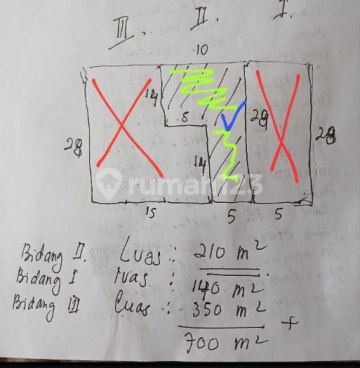 III. II. I.
10
14
8
28
28
28
14
15
5
5
rumah123
Bidang II. Luas : 210 m²
Bidang I luas : 140 m²
Bidang III Luas : 350 m² +
700 m²